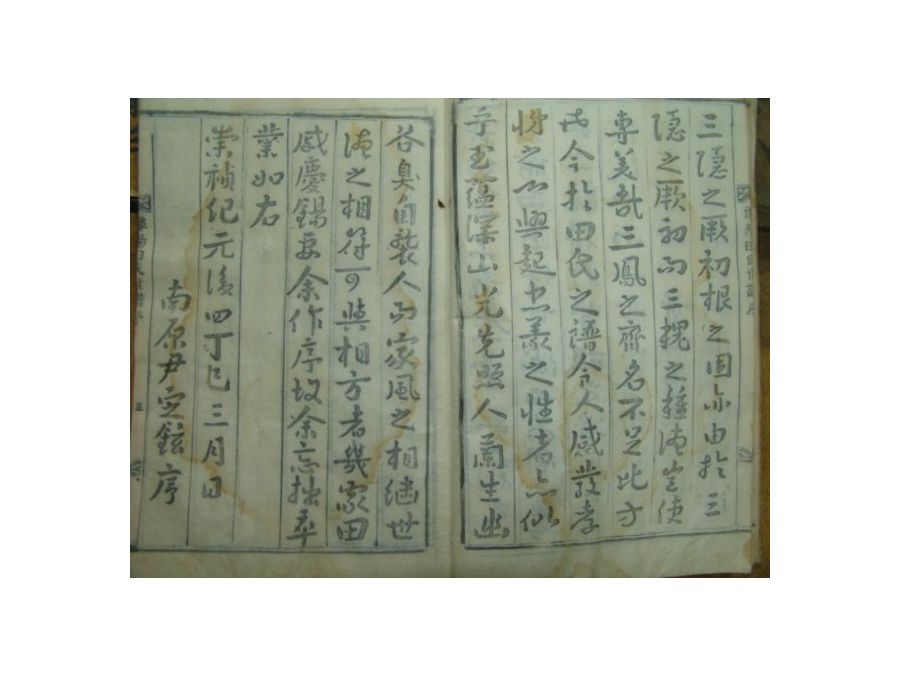 三隠之厥初根之固亦由扵三
隠之厥初而三槐之種徳豈使
專美㢤三鳳之齊名不足比方
今扵田氏之譜令人感發孝
悌之心興起忠義之性者亦似
乎玉蘊深山光先照人蘭生幽
谷臭自襲人而家風之相継世
徳之相符可與相方者幾家田
慶錫要余作序故余忘拙
業如右
崇禎紀元後四丁巳三月日
南原尹定鉉序